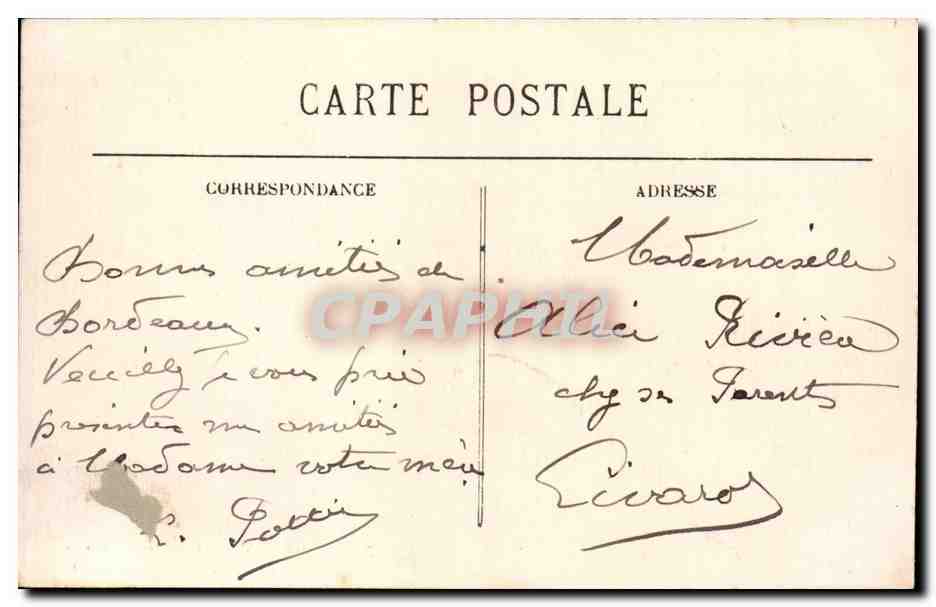 CARTE POSTALE
CORRESPONDANCE
ADRESSE
Bonnes amitiés de
Bordeaux.
Veuillez je vous prie
présenter mes amitiés
à Madame votre mère
Mademoiselle
Alice Rivière
chez ses Parents
Livarot
CPAPHIL